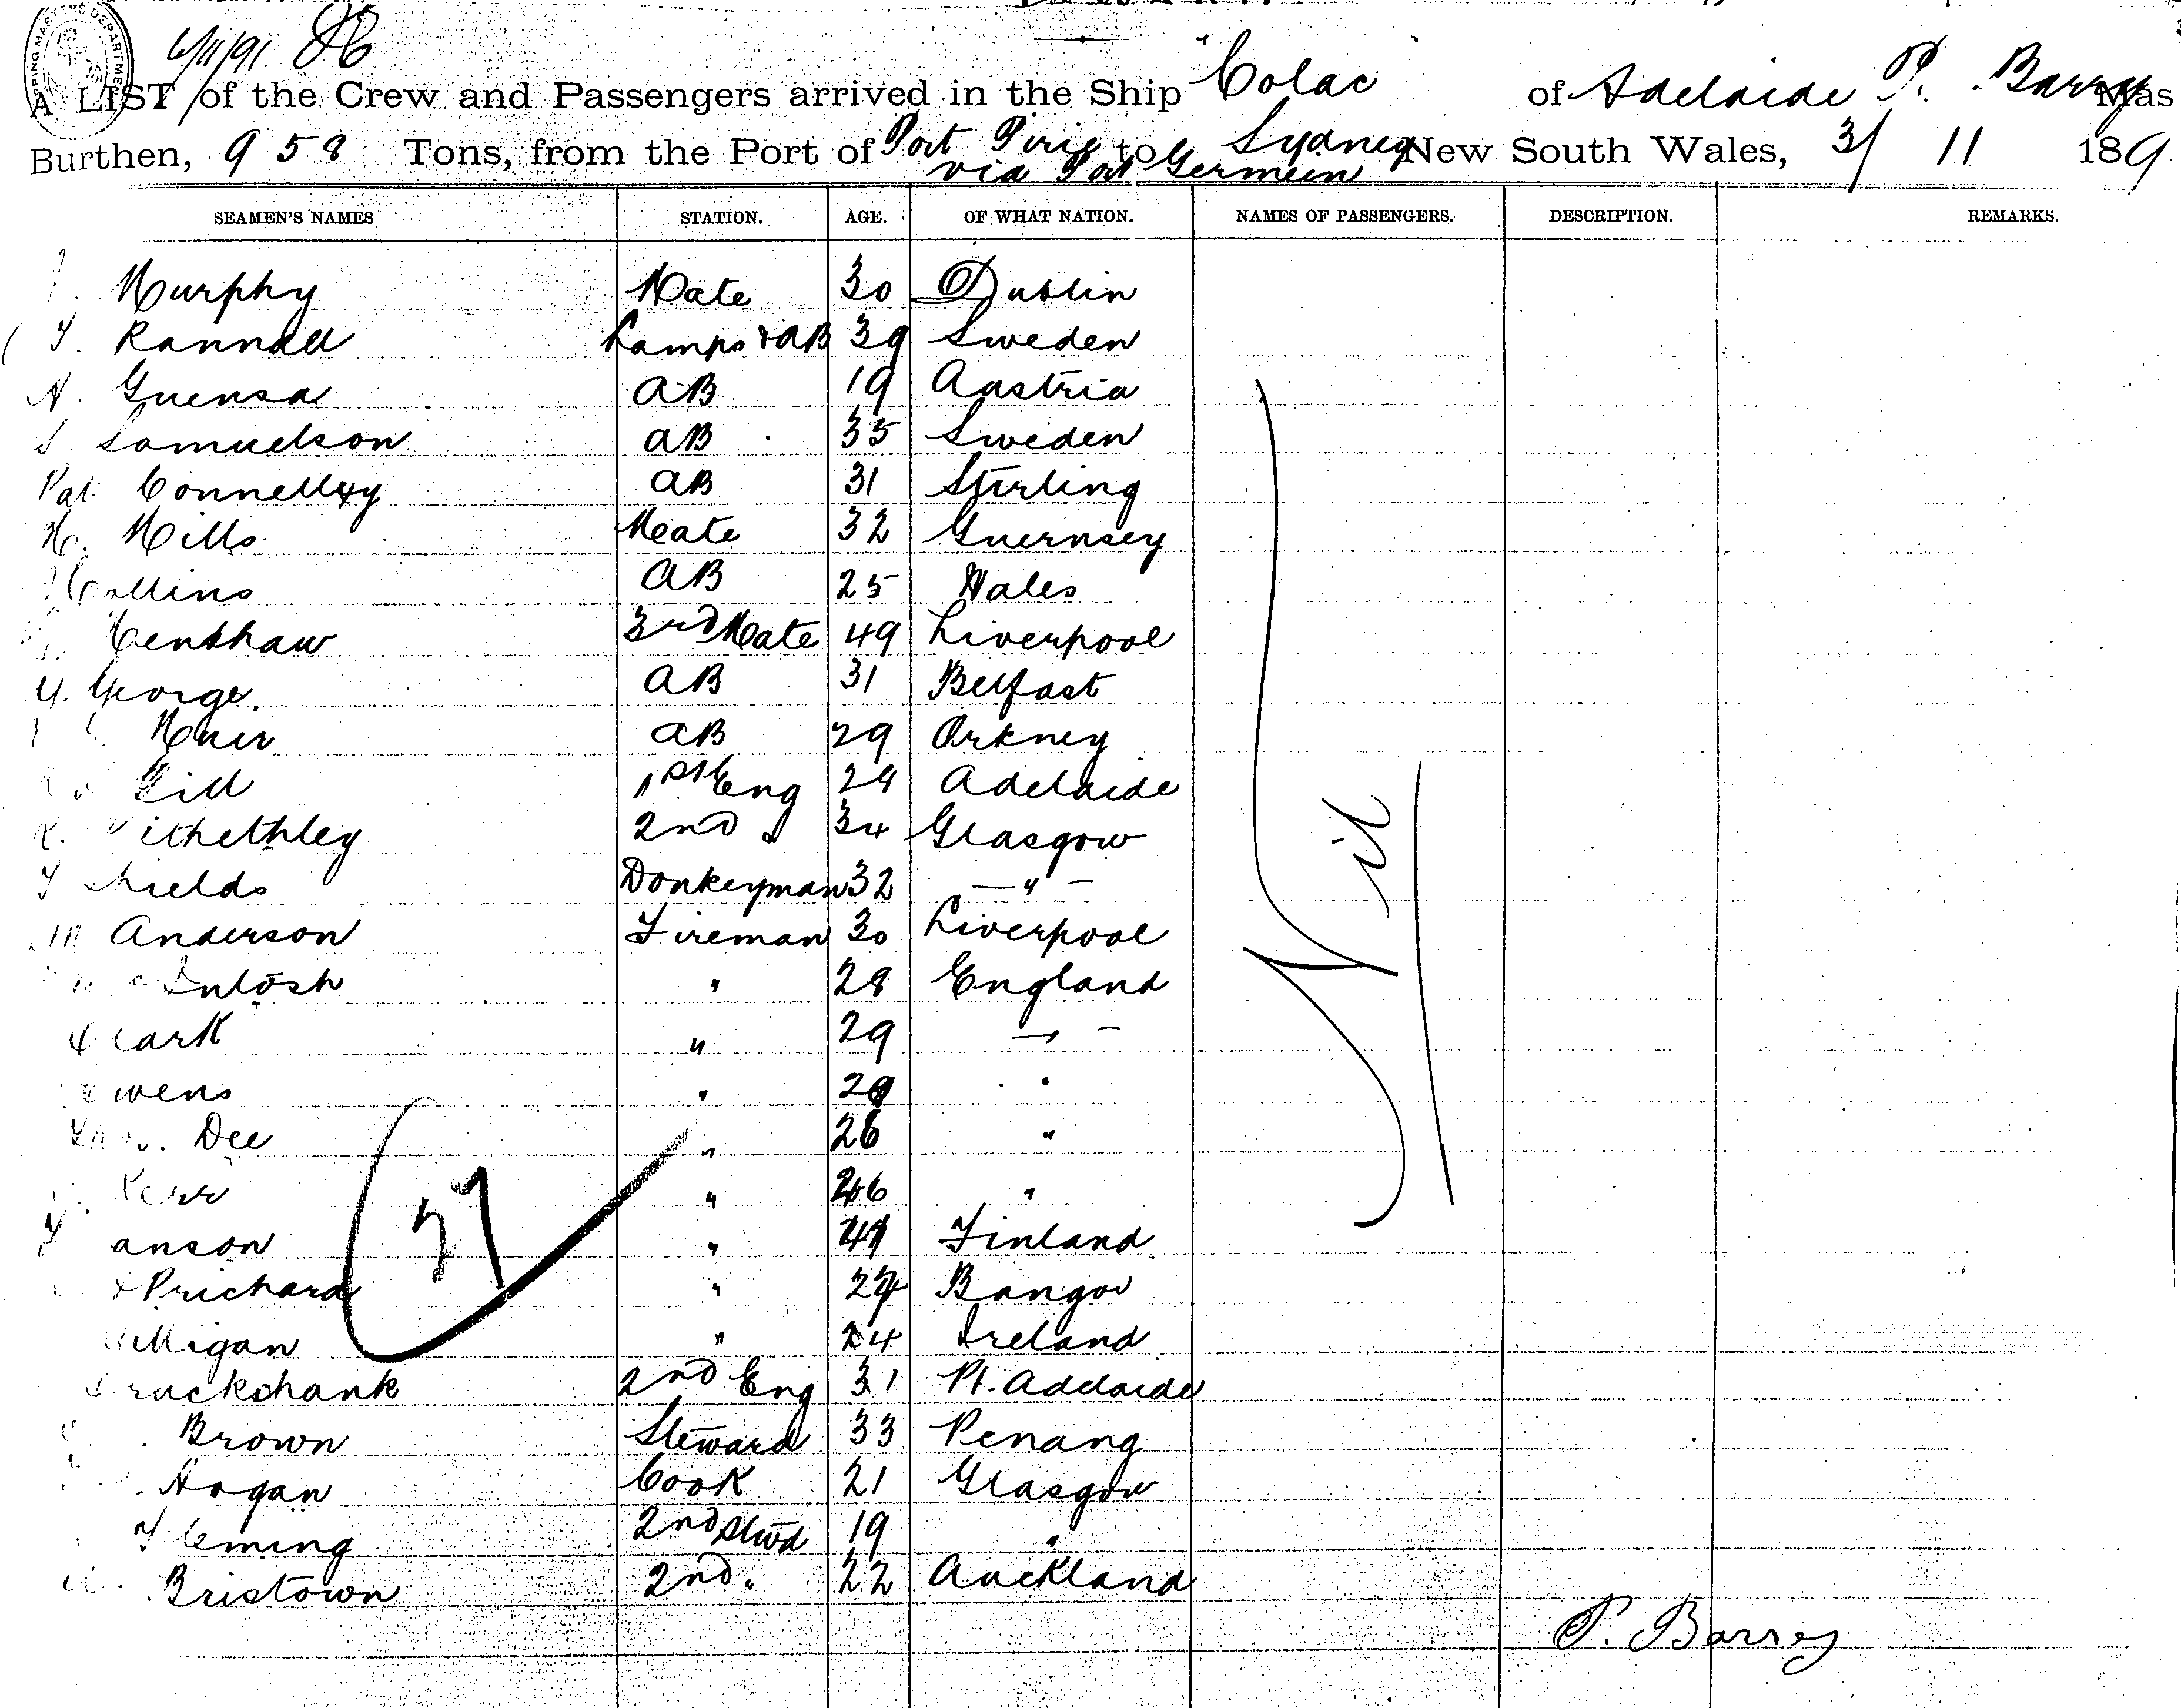 6/11/91
A LIST of the Crew and Passengers arrived in the Ship "Colac" of Adelaide P. Barry Mas
Burthen, 958 Tons, from the Port of Port Pirie to Sydney New South Wales, 3/ 11 189
via Port Germein
SEAMEN'S NAMES. STATION. AGE. OF WHAT NATION. NAMES OF PASSENGERS. DESCRIPTION. REMARKS.
Murphy Mate 30 Dublin
Y. Ranndell Lamps & AB 39 Sweden
N. Guensa AB 19 Austria
S Samuelson AB 35 Sweden
Pat Connelly AB 31 Stirling
H. Mills Mate 32 Guernsey
Collins AB 25 Wales
Henshaw 3rd Mate 49 Liverpool
Y. George. AB 31 Belfast
Muir AB 29 Orkney
Gill 1st Eng 28 Adelaide
ithethley 2nd " 34 Glasgow
hields Donkeyman 32 — " —
Anderson Fireman 30 Liverpool
Intosh " 28 England
Clark " 29
wens " 29 "
Dee " 26 "
Kerr " 26 "
anson " 41 Finland
Prichard " 24 Bangor
illigan " 24 Ireland
ruckshank 2nd Eng 31 Pt. Adelaide
Brown Steward 33 Penang
Hogan Cook 21 Glasgow
Fleming 2nd Stwd 19 "
Bristown 2nd " 22 Auckland
Nil
27
P. Barrey